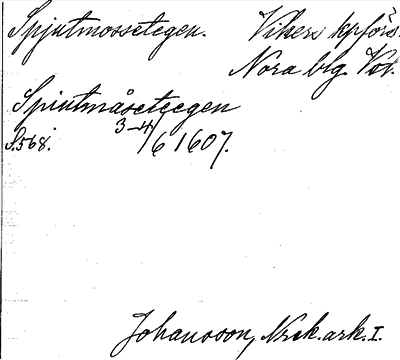 Spjutmossetegen. Vikers kpförs.
Nora brg. Vstr.
Spiutmåseteegen
S. 568. 3-4/6 1607.
Johansson, Nzek. ark. I.